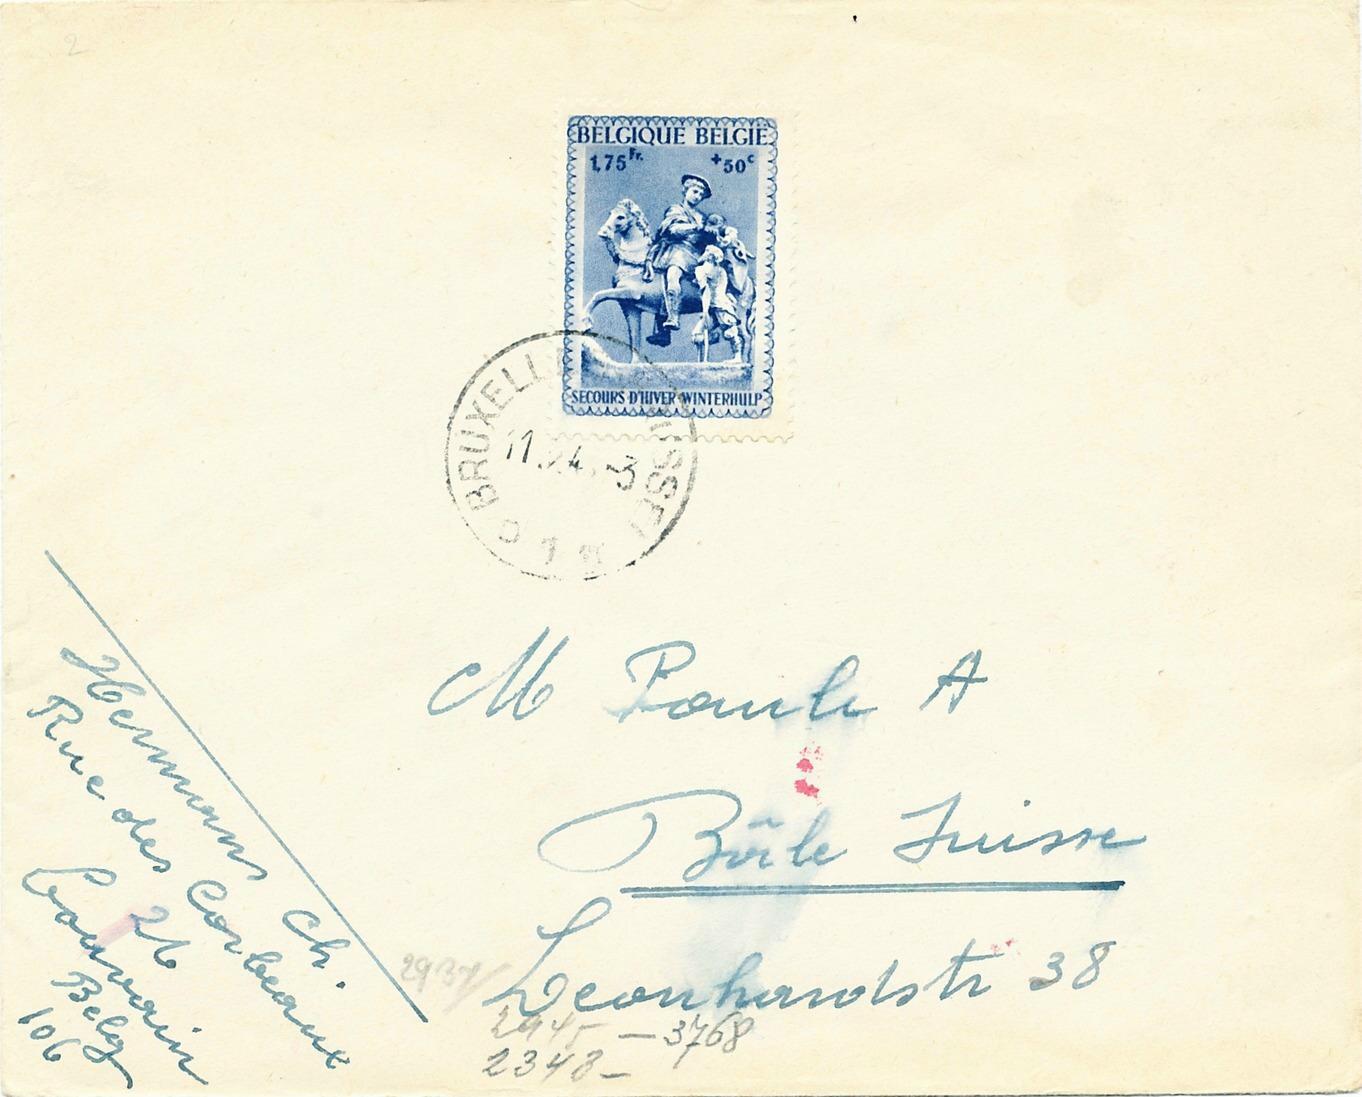 2
BELGIQUE BELGIË
1,75 Fr. +50 c
SECOURS D'HIVER WINTERHULP
BRUXELLES
BRUSSEL
C 1 C
M Pauli A
Bâle Suisse
Leonhardstr 38
Hermans Ch.
Rue des Corbeaux
26
Louvain
Belg
106
2937
2945 - 3768
2343 -